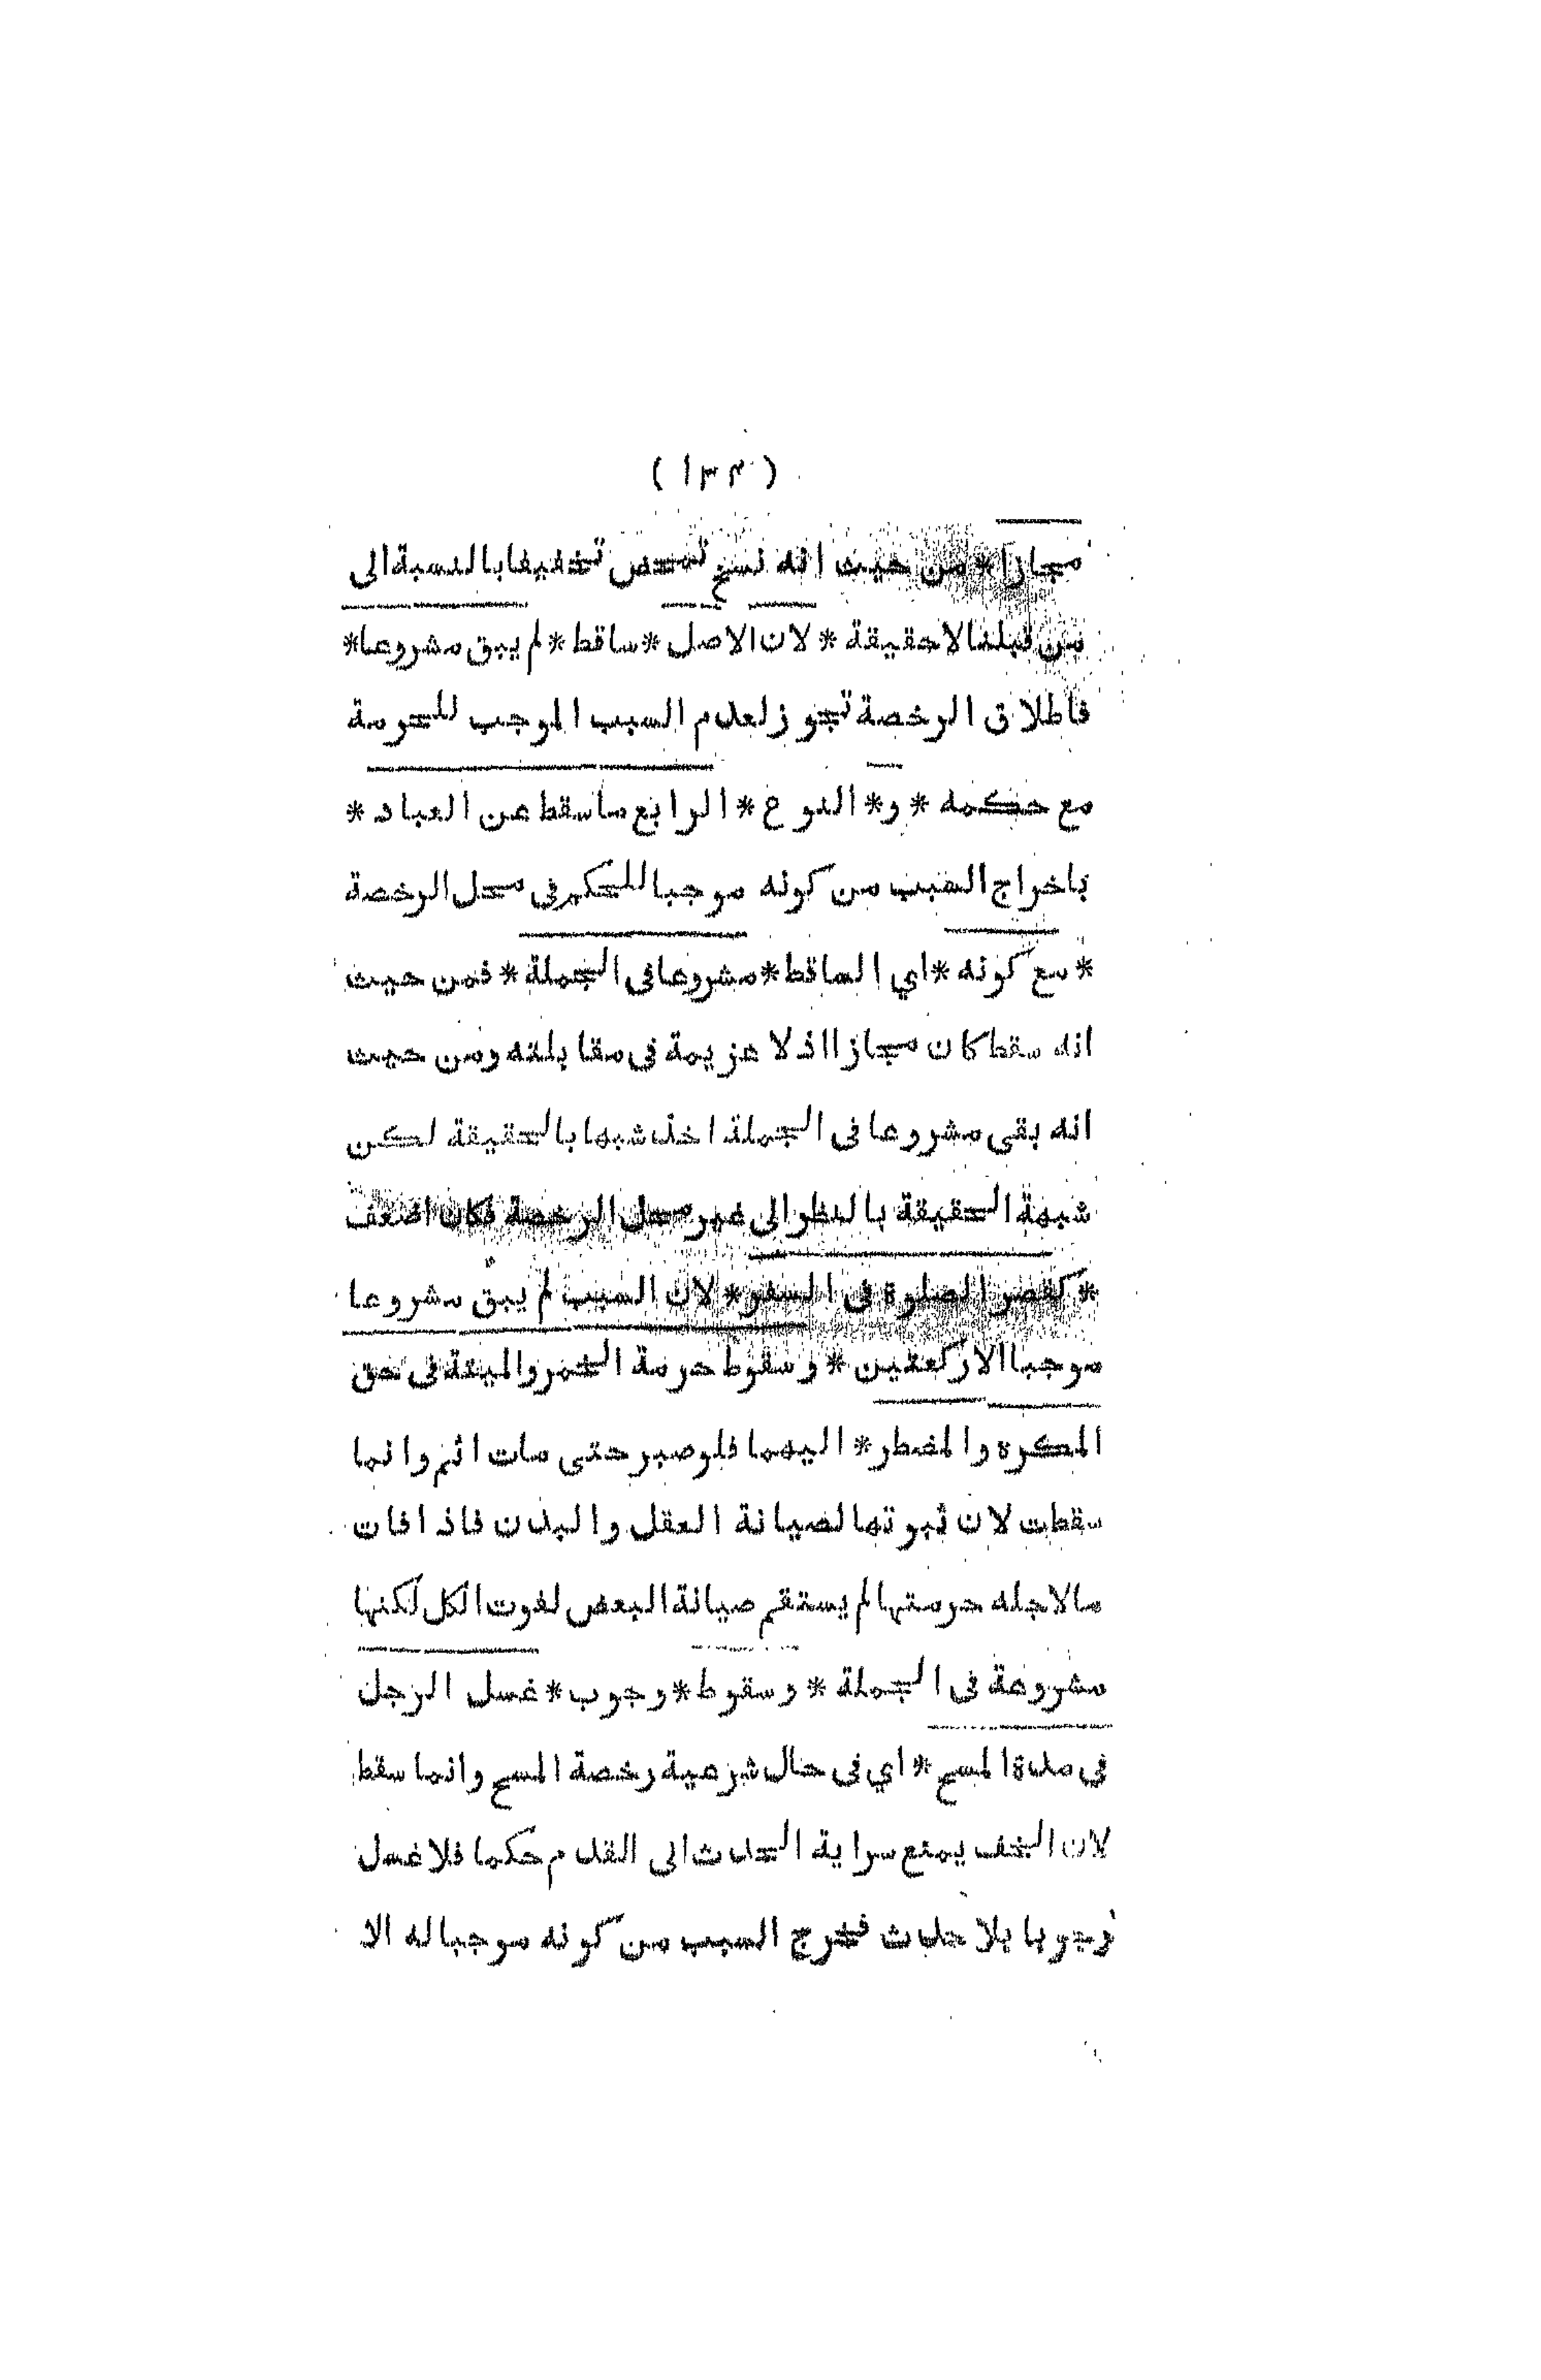 ( ١٣٤ )
مجازا * من حيث انه نسخ تمحض تخفيفا بالنسبة الى
من قبلنا لا حقيقة * لان الاصل * ساقط * لم يبق مشروعا *
فاطلاق الرخصة تجوز لعدم السبب الموجب للحرمة
مع حكمه * و * النوع * الرابع ما سقط عن العباد *
باخراج السبب من كونه موجبا للحكم في محل الرخصة
* مع كونه * اي الساقط * مشروعا في الجملة * فمن حيث
انه سقط كان مجازا اذ لا عزيمة في مقابلته ومن حيث
انه بقي مشروعا في الجملة اخذ شبها بالحقيقة لكن
شبهة الحقيقة بالنظر الى غير محل الرخصة فكان اضعف
* كقصر الصلوة في السفر * لان السبب لم يبق مشروعا
موجبا الا ركعتين * وسقوط حرمة الخمر والميتة في حق
المكره والمضطر * اليهما فلو صبر حتى مات اثم وانما
سقطت لان ثبوتها لصيانة العقل والبدن فاذا فات
ما لاجله حرمتها لم يستقم صيانة البعض لفوت الكل لكنها
مشروعة في الجملة * وسقوط * وجوب * غسل الرجل
في مدة المسح * اي في حال شرعية رخصة المسح وانما سقط
لان الخف يمنع سراية الحدث الى القدم حكما فلا غسل
وجوبا بلا حدث فخرج السبب من كونه موجبا له الا